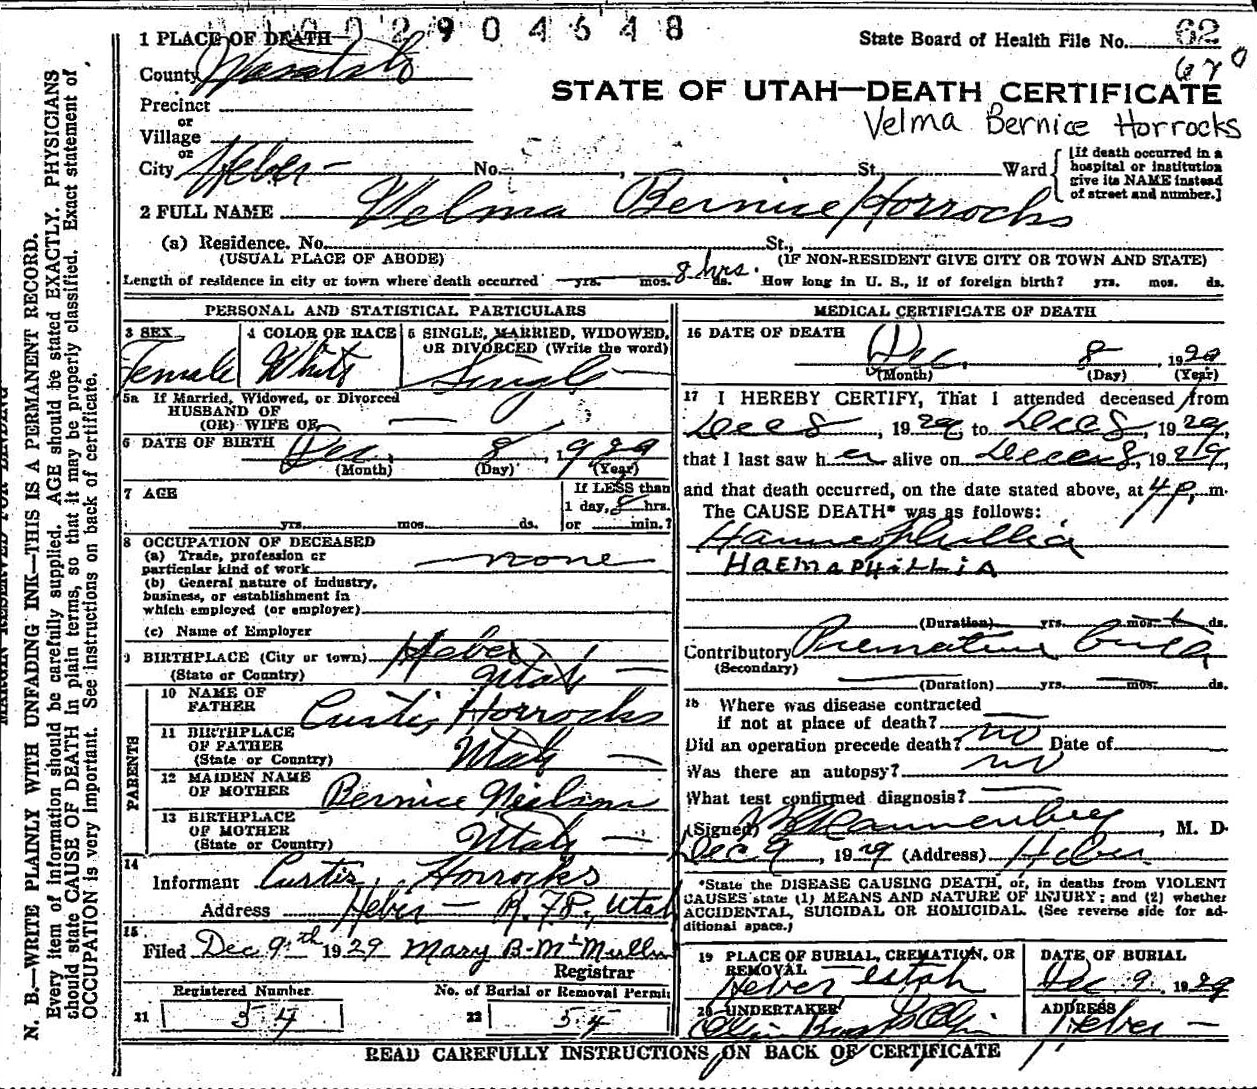 1002904648
1 PLACE OF DEATH
State Board of Health File No. 62
County Wasatch
620
STATE OF UTAH—DEATH CERTIFICATE
Precinct
or
Velma Bernice Horrocks
Village
or
City Heber — No. St. Ward [If death occurred in a
hospital or institution
give its NAME instead
of street and number.]
2 FULL NAME Velma Bernice Horrocks
(a) Residence. No. St.,
(USUAL PLACE OF ABODE) (IF NON-RESIDENT GIVE CITY OR TOWN AND STATE)
Length of residence in city or town where death occurred yrs. mos. 8 hrs. ds. How long in U. S., if of foreign birth? yrs. mos. ds.
PERSONAL AND STATISTICAL PARTICULARS
3 SEX
Female
4 COLOR OR RACE
White
5 SINGLE, MARRIED, WIDOWED,
OR DIVORCED (Write the word)
Single
5a If Married, Widowed, or Divorced
HUSBAND OF
(OR) WIFE OF
6 DATE OF BIRTH Dec, 8, 1929
(Month) (Day) (Year)
7 AGE
yrs. mos. ds.
If LESS than
1 day, 8 hrs.
or min.?
8 OCCUPATION OF DECEASED
(a) Trade, profession or
particular kind of work none
(b) General nature of industry,
business, or establishment in
which employed (or employer)
(c) Name of Employer
9 BIRTHPLACE (City or town) Heber
(State or Country) Utah —
PARENTS
10 NAME OF
FATHER Curtis Horrocks
11 BIRTHPLACE
OF FATHER
(State or Country) Utah —
12 MAIDEN NAME
OF MOTHER Bernice Nielson
13 BIRTHPLACE
OF MOTHER
(State or Country) Utah —
14
Informant Curtis Horrocks
Address Heber — R. 7 Utah
15
Filed Dec 9th 1929 Mary B. McMullin
Registrar
Registered Number
21 54
No. of Burial or Removal Permit
22 54
MEDICAL CERTIFICATE OF DEATH
16 DATE OF DEATH
Dec, 8, 1929
(Month) (Day) (Year)
17 I HEREBY CERTIFY, That I attended deceased from
Dec 8, 1929, to Dec 8, 1929,
that I last saw her alive on Dec 8, 1929,
and that death occurred, on the date stated above, at 4 p. m.
The CAUSE DEATH* was as follows:
Haemophillia
HAEMAPHILLIA
(Duration) yrs. mos. ds.
Contributory Premature birth
(Secondary)
(Duration) yrs. mos. ds.
18 Where was disease contracted
if not at place of death?
Did an operation precede death? no Date of
Was there an autopsy? no
What test confirmed diagnosis?
(Signed) , M. D.
Dec 9, 1929 (Address) Heber
*State the DISEASE CAUSING DEATH, or, in deaths from VIOLENT
CAUSES state (1) MEANS AND NATURE OF INJURY; and (2) whether
ACCIDENTAL, SUICIDAL OR HOMICIDAL. (See reverse side for ad-
ditional space.)
19 PLACE OF BURIAL, CREMATION, OR
REMOVAL
Heber Utah
DATE OF BURIAL
Dec 9, 1929
20 UNDERTAKER
ADDRESS
Heber —
READ CAREFULLY INSTRUCTIONS ON BACK OF CERTIFICATE
MARGIN RESERVED FOR BINDING
N. B.—WRITE PLAINLY WITH UNFADING INK—THIS IS A PERMANENT RECORD.
Every item of information should be carefully supplied. AGE should be stated EXACTLY. PHYSICIANS
should state CAUSE OF DEATH in plain terms, so that it may be properly classified. Exact statement of
OCCUPATION is very important. See instructions on back of certificate.